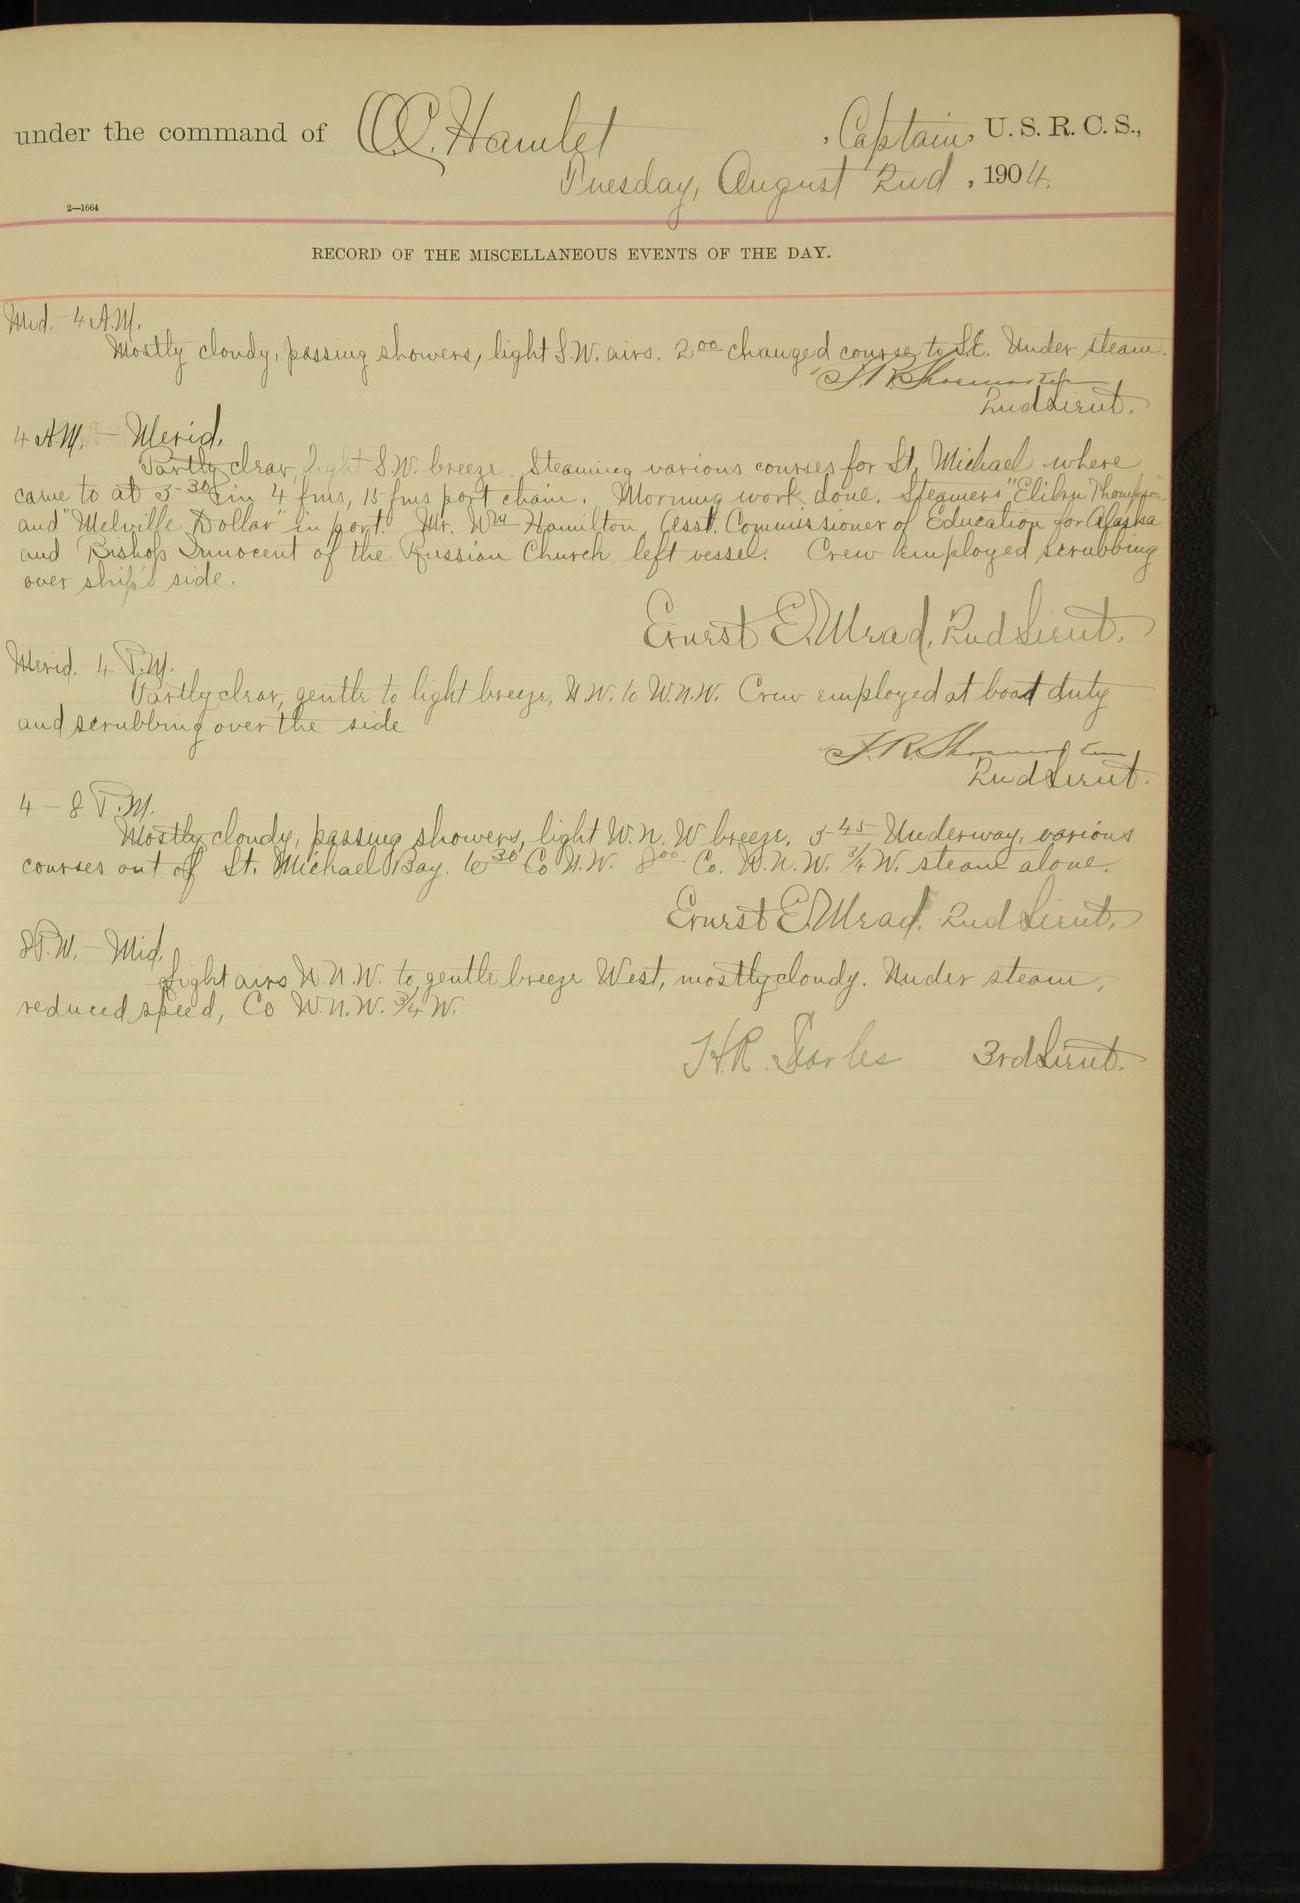 under the command of O.C. Hamlet, Captain, U. S. R. C. S.,
Tuesday, August 2nd, 1904.
2—1664
RECORD OF THE MISCELLANEOUS EVENTS OF THE DAY.
Mid. - 4 A.M.
Mostly cloudy, passing showers, light S.W. airs. 2 00 changed course to S.E. Under steam.
2nd Lieut.
4 A.M. - Merid.
Partly clear, light S.W. breeze. Steaming various courses for St. Michael where
came to at 5-30 in 4 fms, 15 fms port chain. Morning work done. Steamers "Elihu Thompson"
and "Melville Dollar" in port. Mr. Wm Hamilton, Asst. Commissioner of Education for Alaska
and Bishop Innocent of the Russian Church, left vessel. Crew employed scrubbing
over ship's side.
Ernest E. Mead, 2nd Lieut.
Merid. 4 P.M.
Partly clear, gentle to light breeze, N.W. to W.N.W. Crew employed at boat duty
and scrubbing over the side
2nd Lieut.
4 - 8 P.M.
Mostly cloudy, passing showers, light W.N.W breeze. 5-45 Underway, various
courses out of St. Michael Bay. 6 30 Co N.W. 8 00 Co. W.N.W. 3/4 W. steam alone.
Ernest E. Mead, 2nd Lieut.
8 P.M. - Mid.
Light airs W.N.W. to gentle breeze West, mostly cloudy. Under steam,
reduced speed, Co W.N.W. 3/4 W.
H.R. Searles 3rd Lieut.